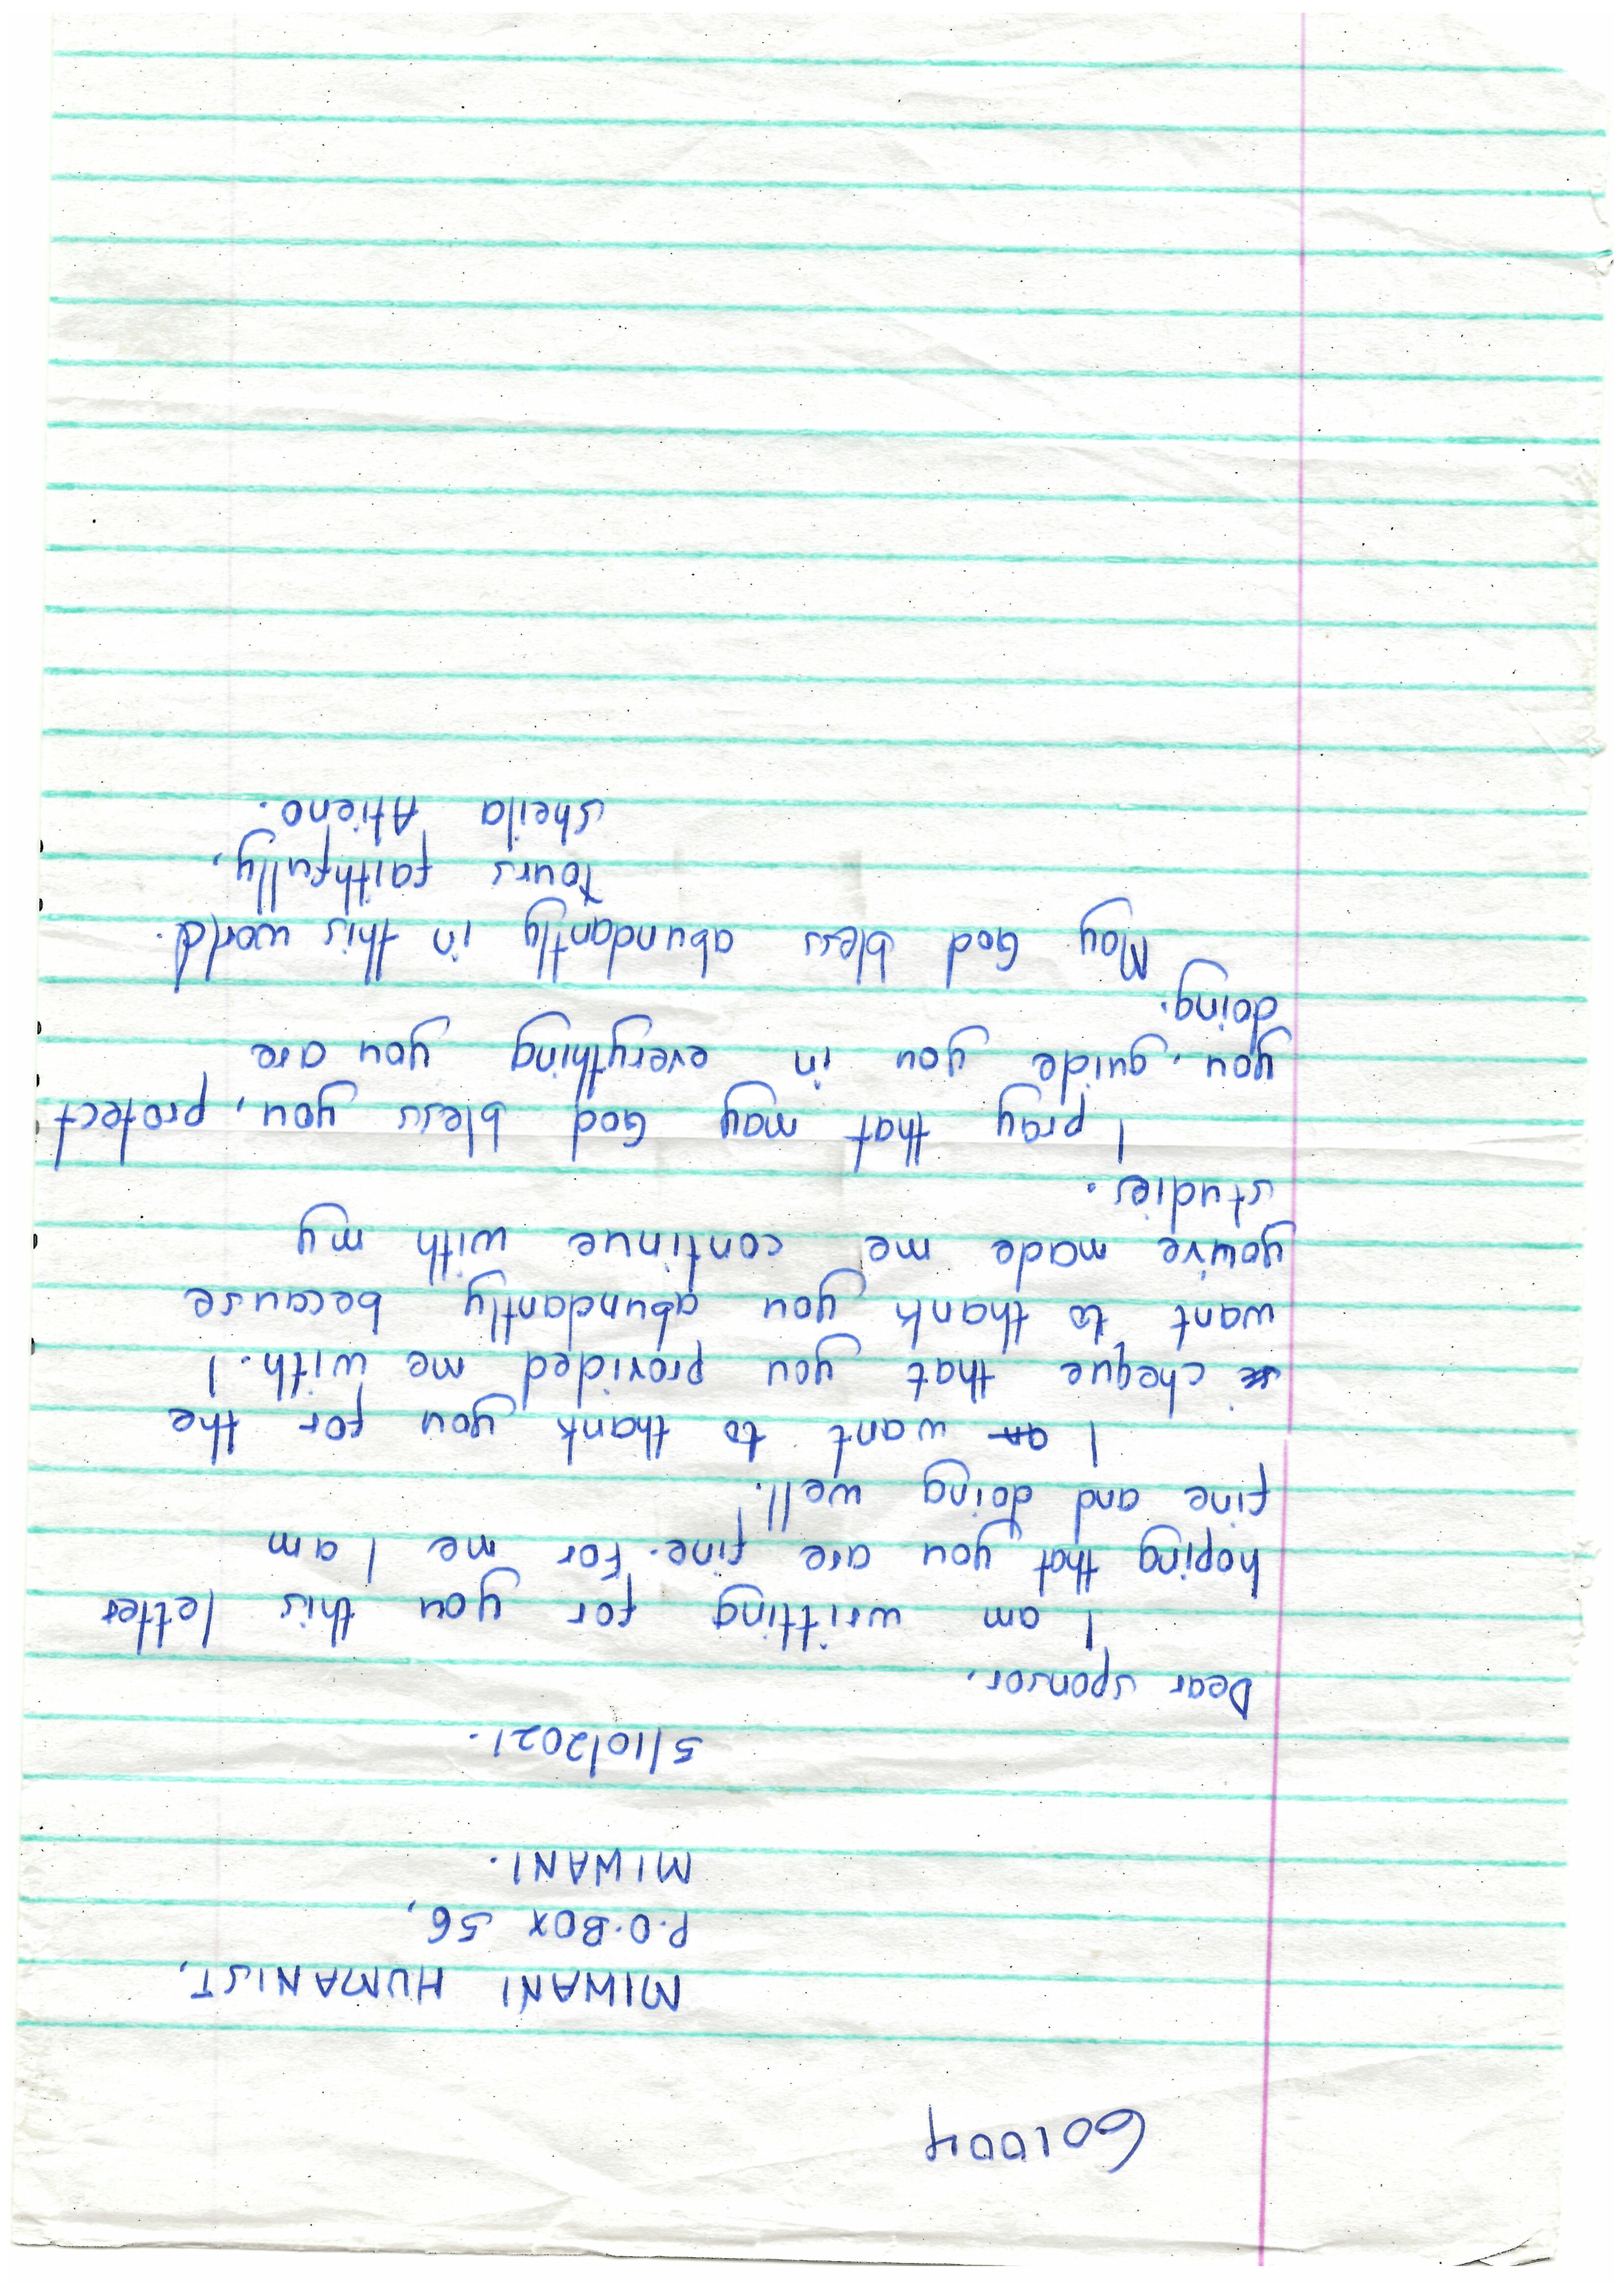 601004
MIWANI HUMANIST,
P.O.BOX 56,
MIWANI.
5/10/2021.
Dear sponsor,
I am writting for you this letter
hoping that you are fine. For me I am
fine and doing well.
I want to thank you for the
cheque that you provided me with. I
want to thank you abundantly because
you've made me continue with my
studies.
I pray that may God bless you, protect
you, guide you in everything you are
doing.
May God bless abundantly in this world.
Yours faithfully,
Sheila Atieno.